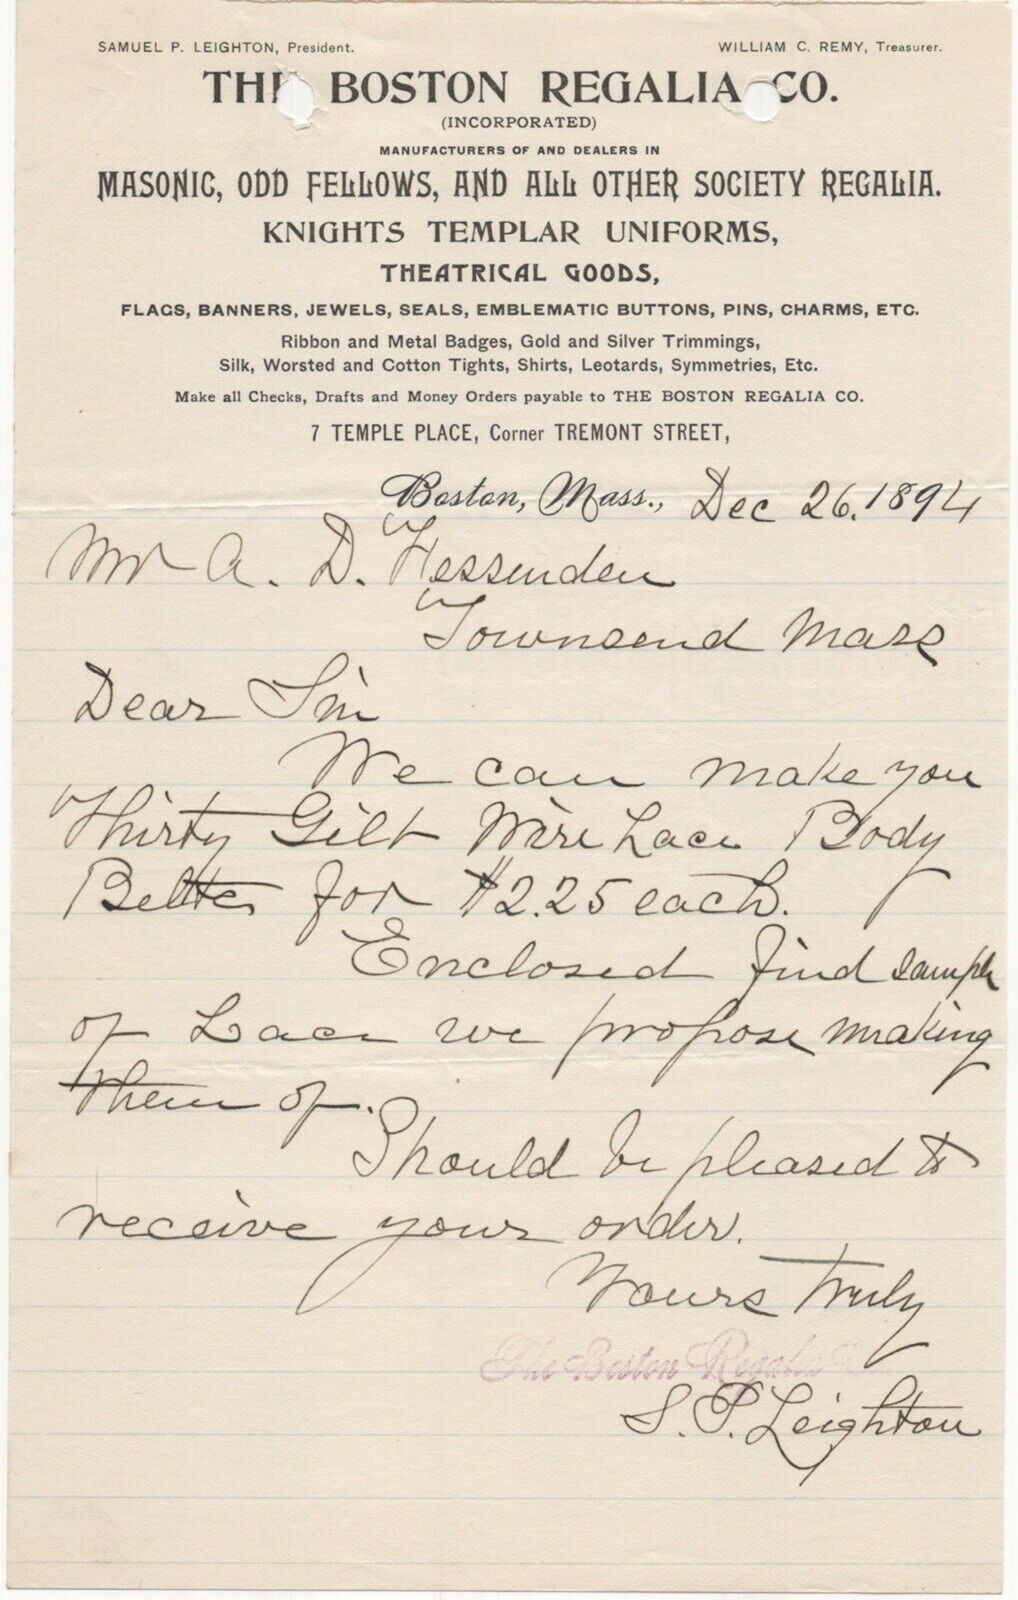 SAMUEL P. LEIGHTON, President. WILLIAM C. REMY, Treasurer.
THE BOSTON REGALIA CO.
(INCORPORATED)
MANUFACTURERS OF AND DEALERS IN
MASONIC, ODD FELLOWS, AND ALL OTHER SOCIETY REGALIA.
KNIGHTS TEMPLAR UNIFORMS,
THEATRICAL GOODS,
FLAGS, BANNERS, JEWELS, SEALS, EMBLEMATIC BUTTONS, PINS, CHARMS, ETC.
Ribbon and Metal Badges, Gold and Silver Trimmings,
Silk, Worsted and Cotton Tights, Shirts, Leotards, Symmetries, Etc.
Make all Checks, Drafts and Money Orders payable to THE BOSTON REGALIA CO.
7 TEMPLE PLACE, Corner TREMONT STREET,
Boston, Mass., Dec 26. 1894
Mr A. D. Fessenden
Townsend Mass
Dear Sir
We can make you
Thirty Gilt Wire Lace Body
Belts for $2.25 each.
Enclosed find sample
of Lace we propose making
them of.
Should be pleased to
receive your order.
Yours Truly
The Boston Regalia
S. P. Leighton